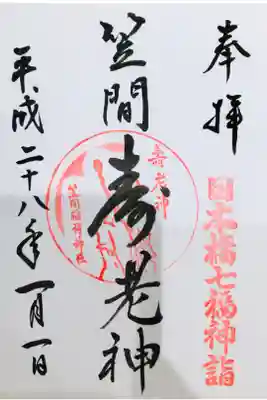 奉拝
日本橋七福神詣
笠間寿老神
寿老神
笠間稲荷神社
平成二十八年一月一日